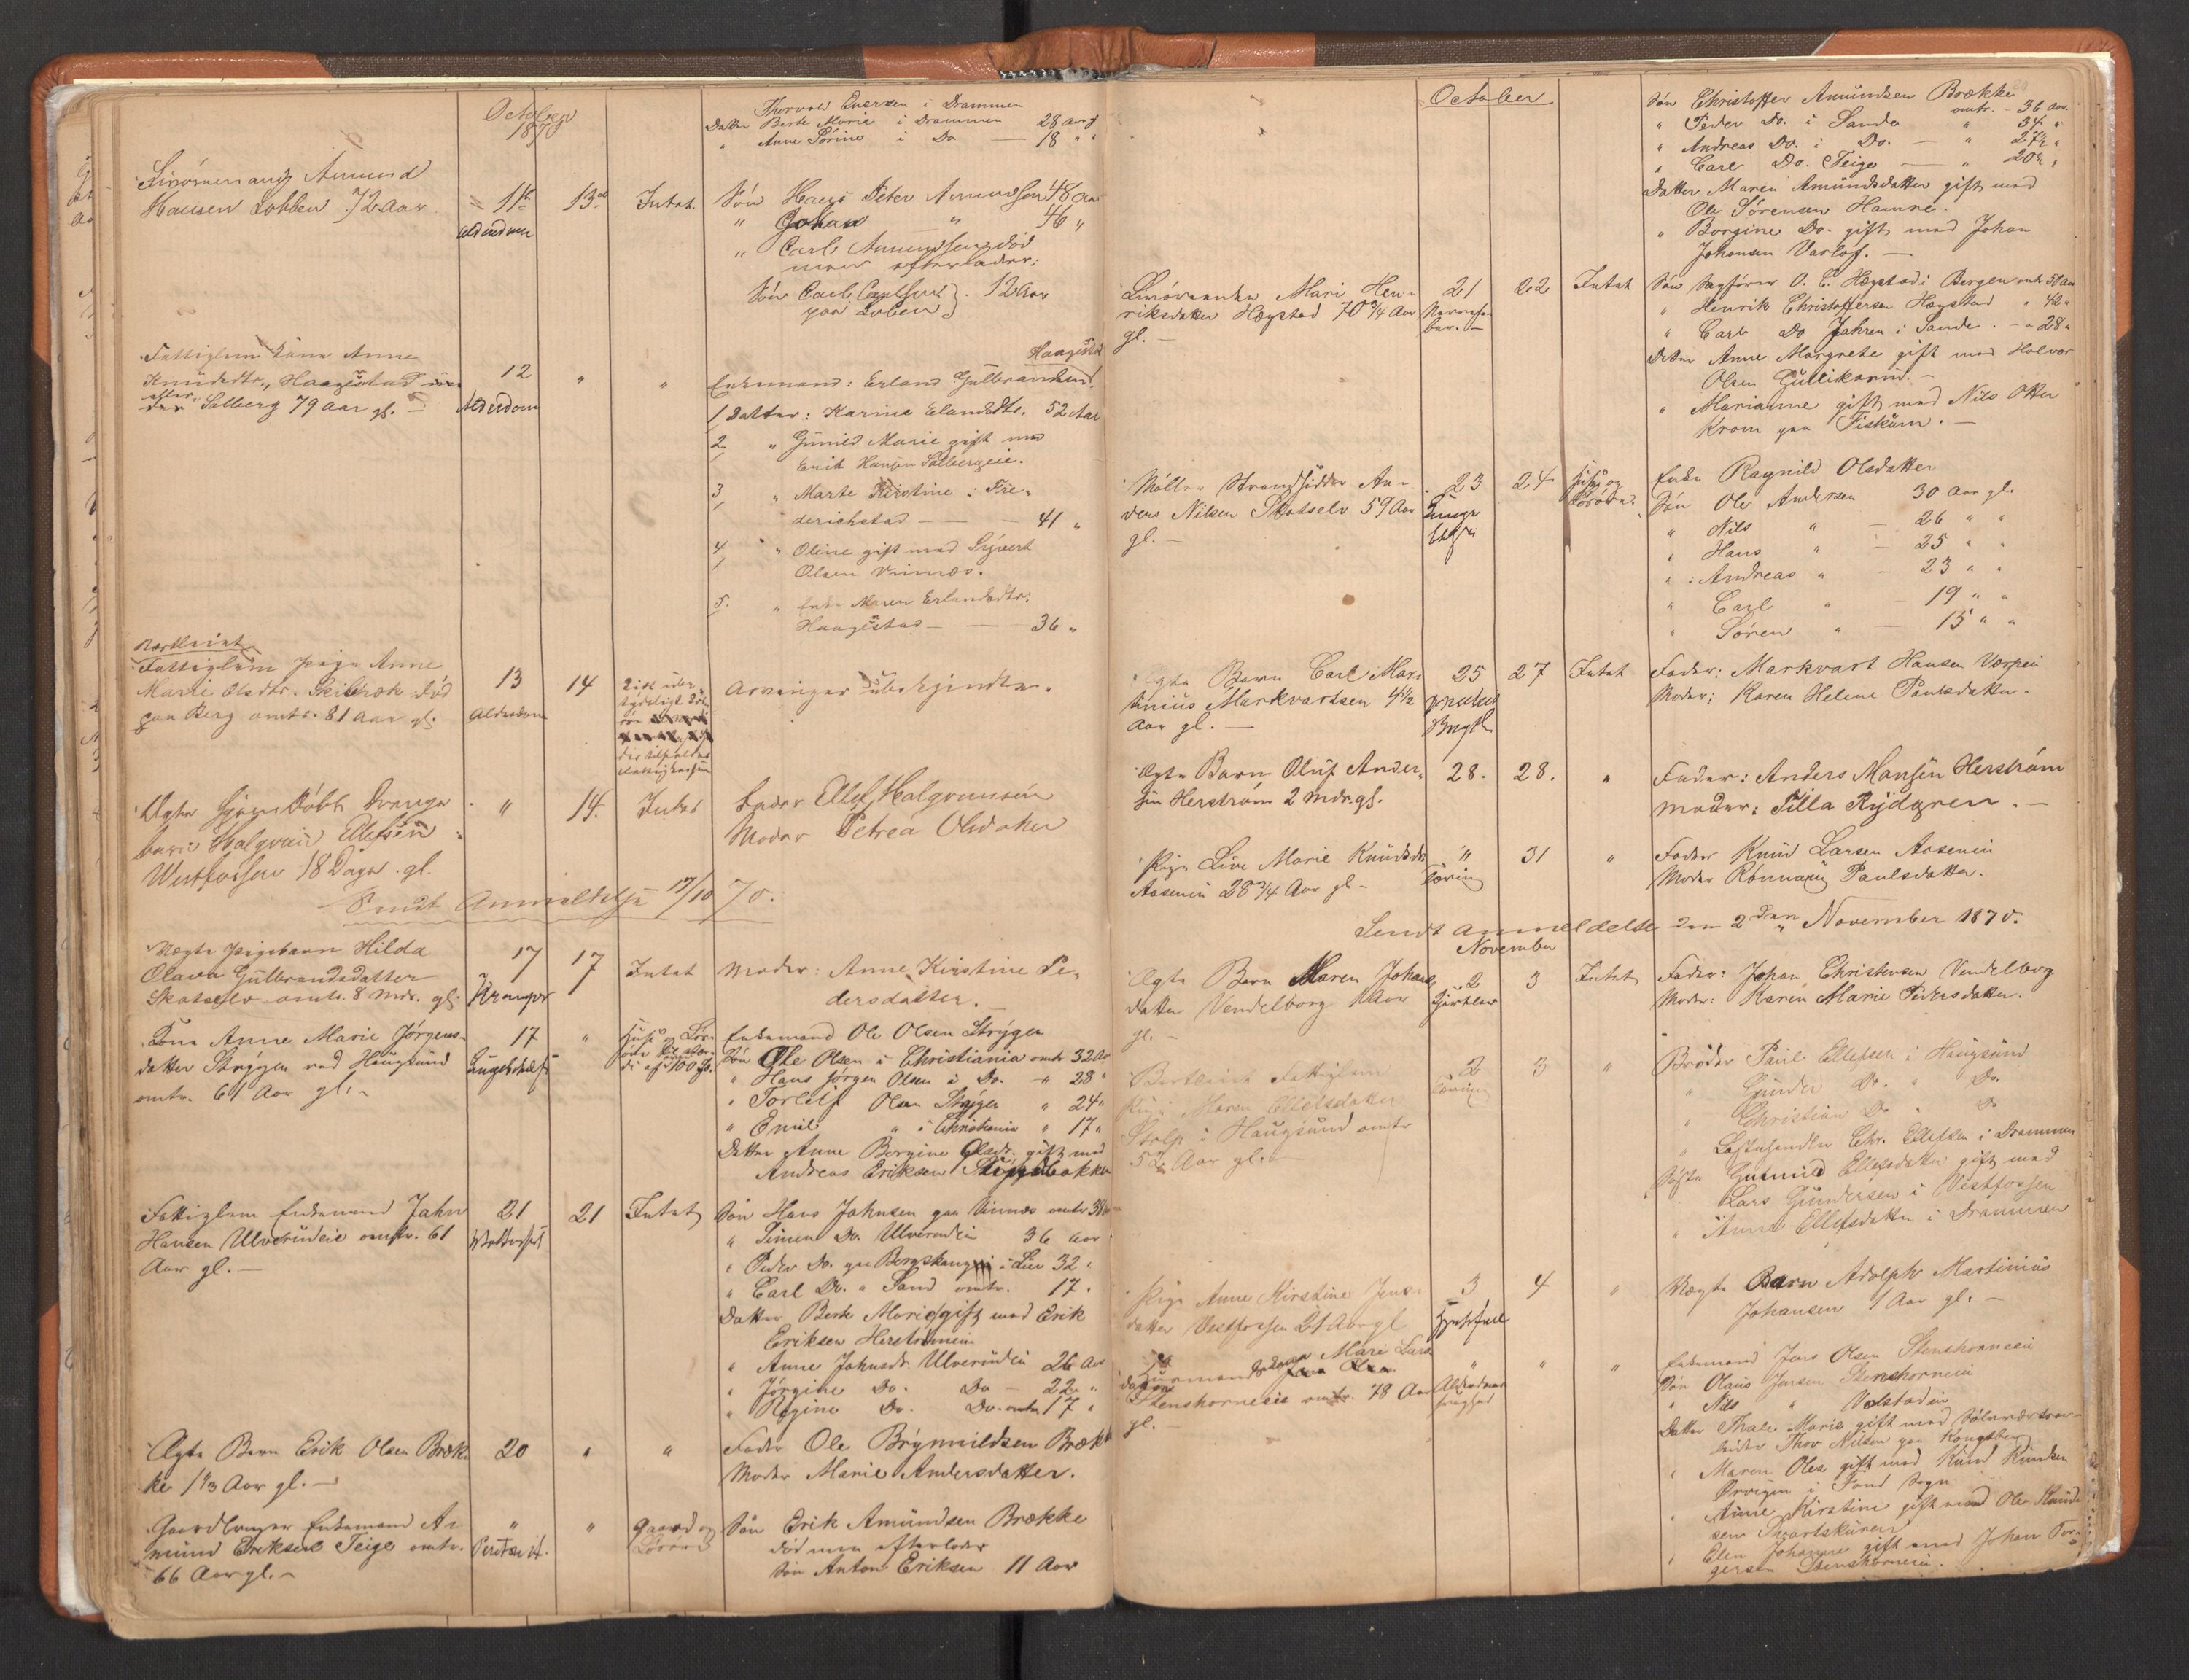 October
1870
Thorvald Eversen i Drammen
Datter Berte Marie i Drammen 28 aar
" Anne Pörine i Do 18 " "
Amund
Hansen Lobben 72 aar 11te 13de Intet. Sön Hans Peter Amundsen 48 aar
Alderdom
" Johan " 46 "
" Carl Amundsen död
men efterlader:
Sön Carl Carlsen 12 Aar
paa Loben
Fattiglem Kone Anne
Knudsdtr. Haagestad
eller Solberg 79 aar gl. 12 " " Enkemand: Erland Gulbrandsen
Haagestad
Alderdom
1 Datter: Karine Erlandsdtr. 52 Aar
2 " Gunild Marie gift med
Erik Hansen Solbergeie.
3 " Marte Kirstine i Fre-
derichstad 41 "
4 " Oline gift med Syvert
Olsen Vinnes.
5. " Enke Maren Erlandsdtr.
Haagestad 36 "
Fattiglem Pige Anne
Marie Olsdtr. Skibræk född
paa Berg omtr. 81 aar gl. 13 14 Arvinger ubekjendte.
Alderdom
Ægte hjemdöbt Drenge
barn Halgrim Ellefsen
Westfossen 18 Dage gl. " 14. Intet Fader Ellef Halgrimsen
Moder Petrea Olsdatter
Sendt Anmeldelse 17/10 70.
Uægte Pigebarn Hilda
Olava Gulbrandsdatter
Skotselv omtr. 8 Mdr. gl. 17 17 Intet Moder: Anne Kirstine Pe-
dersdatter.
Kramper
Kone Anne Marie Jörgens-
datter Strygen ved Haugsund
omtr. 61 Aar gl. 17 " Enkemand Ole Olsen Strygen
Sön Ole Olsen i Christiania omtr 32 Aar
" Hans Jörgen Olsen i Do. " 28 "
" Torleif Olsen Strygen " 24 "
" Emil " i Christiania " 17 "
Datter Anne Bergine Olsdr. gift med
Andreas Eriksen
Fattiglem Enkemand Jahn
Hansen Ulverudeie omtr. 61
Aar gl. 21 21 Intet Sön Hans Jahnsen paa Vinnes omtr 38
Wattersot
" Simen Do. Ulverudeie 36 Aar
" Peder Do. paa i Lier 32 "
" Carl Do. " Sand omtr. 17 "
Datter Berte Marie gift med Erik
Eriksen Herströmeie
" Anne Jahnsdr. Ulverudeie 26 Aar
" Jörgine Do. Do 22 "
" Regine Do. Do. omtr. 17 "
Ægte Barn Erik Olsen Bræk-
ke 1 1/3 Aar gl. 20 " " Fader Ole Brynnildsen Brække
Moder Marie Andersdatter.
Gaardbruger Enkemand A-
mund Eriksen Teige omtr.
66 Aar gl. " " Gaard og
Lösöre Sön Erik Amundsen Brække
död men efterlader
Sön Anton Eriksen 11 Aar
October
Sön Christoffer Amundsen Brække
omtr. 36 Aar
" Peder Do. i Sande " 34 "
" Andreas Do. i Do. " 27 1/2 "
" Carl Do. Teige " 20 1/2 "
Datter Maren Amundsdatter gift med
Ole Sörensen Hamre.
" Borgine Do. gift med Johan
Johansen Varlof.
Mari Hen-
riksdatter Hægstad 70 3/4 Aar
gl. 21 22 Intet Sön Sagförer O. C. Hægstad i Bergen omtr 50 Aar
" Henrik Christoffersen Hægstad " 42 "
" Carl Do Jahren i Sande 28 "
Datter Anne Margrete gift med Halvor
Olsen Gullikserud.
" Marianne gift med Nils Otter
Krom paa Fiskum.
Möller Strandsidder An-
ders Nilsen Skotselv 59 Aar
gl. 23 24 Huus og
Lösöre. Enke Ragnild Olsdatter
Sön Ole Andersen 30 Aar gl.
" Nils " 26 " "
" Hans " 25 " "
" Andreas " 23 " "
" Carl " 19 " "
" Sören " 15 " "
Ægte Barn Carl Mar-
tinius Markvartsen 4 1/2
Aar gl. 25 27 Intet Fader: Markvart Hansen Værpeie
Moder: Karen Helene Paulsdatter.
Ægte Barn Oluf Ander-
sen Herström 2 Mdr. gl. 28. 28. " Fader: Anders Monsen Herström
Moder: Tilla Rydgren.
Pige Live Marie Knudsdr.
Aaseneie 28 3/4 Aar gl. " 31 " Fader Knud Larsen Aaseneie
Tæring
Moder Rönnaug Paulsdatter.
Sendt Anmeldelse den 2den November 1870.
November
Ægte Barn Maren Johans-
datter Vendelborg 1 Aar
gl. 2 3 Intet Fader: Johan Christensen Vendelborg
Moder: Karen Marie Pedersdatter.
Fattiglem
Pige Maren Ellefsdatter
Stolp i Haugsund omtr
52 Aar gl. 2 3 " Broder Paul Ellefsen i Haugsund
Tæring
" Gunder Do. " Do.
" Christian Do " Do
" Chr. Ellefsen i Drammen
Söster Gunnild Ellefsdatter gift med
Lars Gundersen i Vestfossen
" Anne Ellefsdatter i Drammen
Pige Anne Kirstine Jens-
datter Vestfossen 21 Aar gl 3 4 " Uægte Barn Adolph Martinius
Johansen 1 Aar gl.
Mari Lars-
datter
Stenshorneie omtr. 78 Aar
gl. " " " Enkemand Jens Olsen Stenshorneie
Sön Olaus Jensen Stenshorneie
" Nils " Vedstadeie
Datter Thale Marie gift med
Thor Nilsen paa Kongsberg
" Maren Olea gift med Knud Knudsen
i Sogn
" Anne Kirstine gift med Ole Knud-
sen
" Elen Johanne gift med Johan Tor-
gersen Stenshorneie.